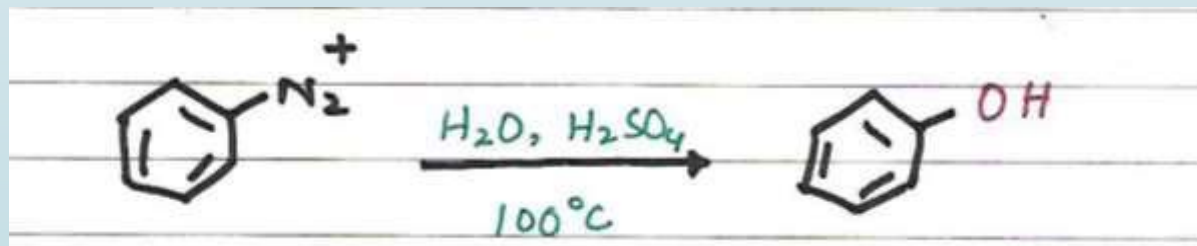 N₂⁺
H₂O, H₂SO₄
100°C
OH